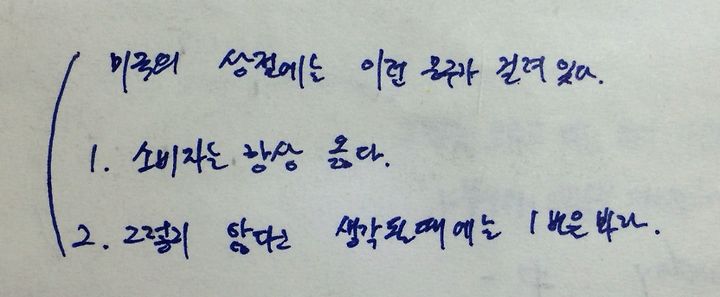 미국의 상점에는 이런 문구가 걸려 있다.
1. 소비자는 항상 옳다.
2. 그렇지 않다고 생각될때에는 1번을 봐라.